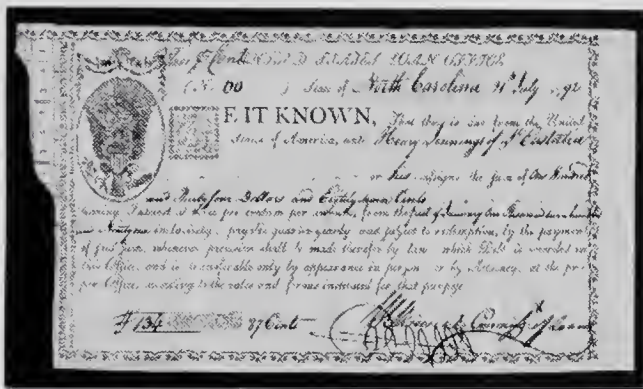 Cent UNITED STATES LOAN OFFICE
No. 00 State of North Carolina 21st July 1792
BE IT KNOWN, That there is due from the United
States of America, unto Henry Jennings of St Eustatia
or his assigns the sum of One Hundred
and Thirty four Dollars and Eighty seven Cents
bearing Interest at three per centum per annum, from the first of January One thousand seven hundred
and Ninety one inclusively, payable quarter yearly and subject to redemption, by the payment
of said sum, whenever provision shall be made therefor by law which Debt is recorded in
this Office, and is transferable only by appearance in person or by Attorney, at the pro-
per Office, according to the rules and forms instituted for that purpose
$ 134 87 Cents of Loans